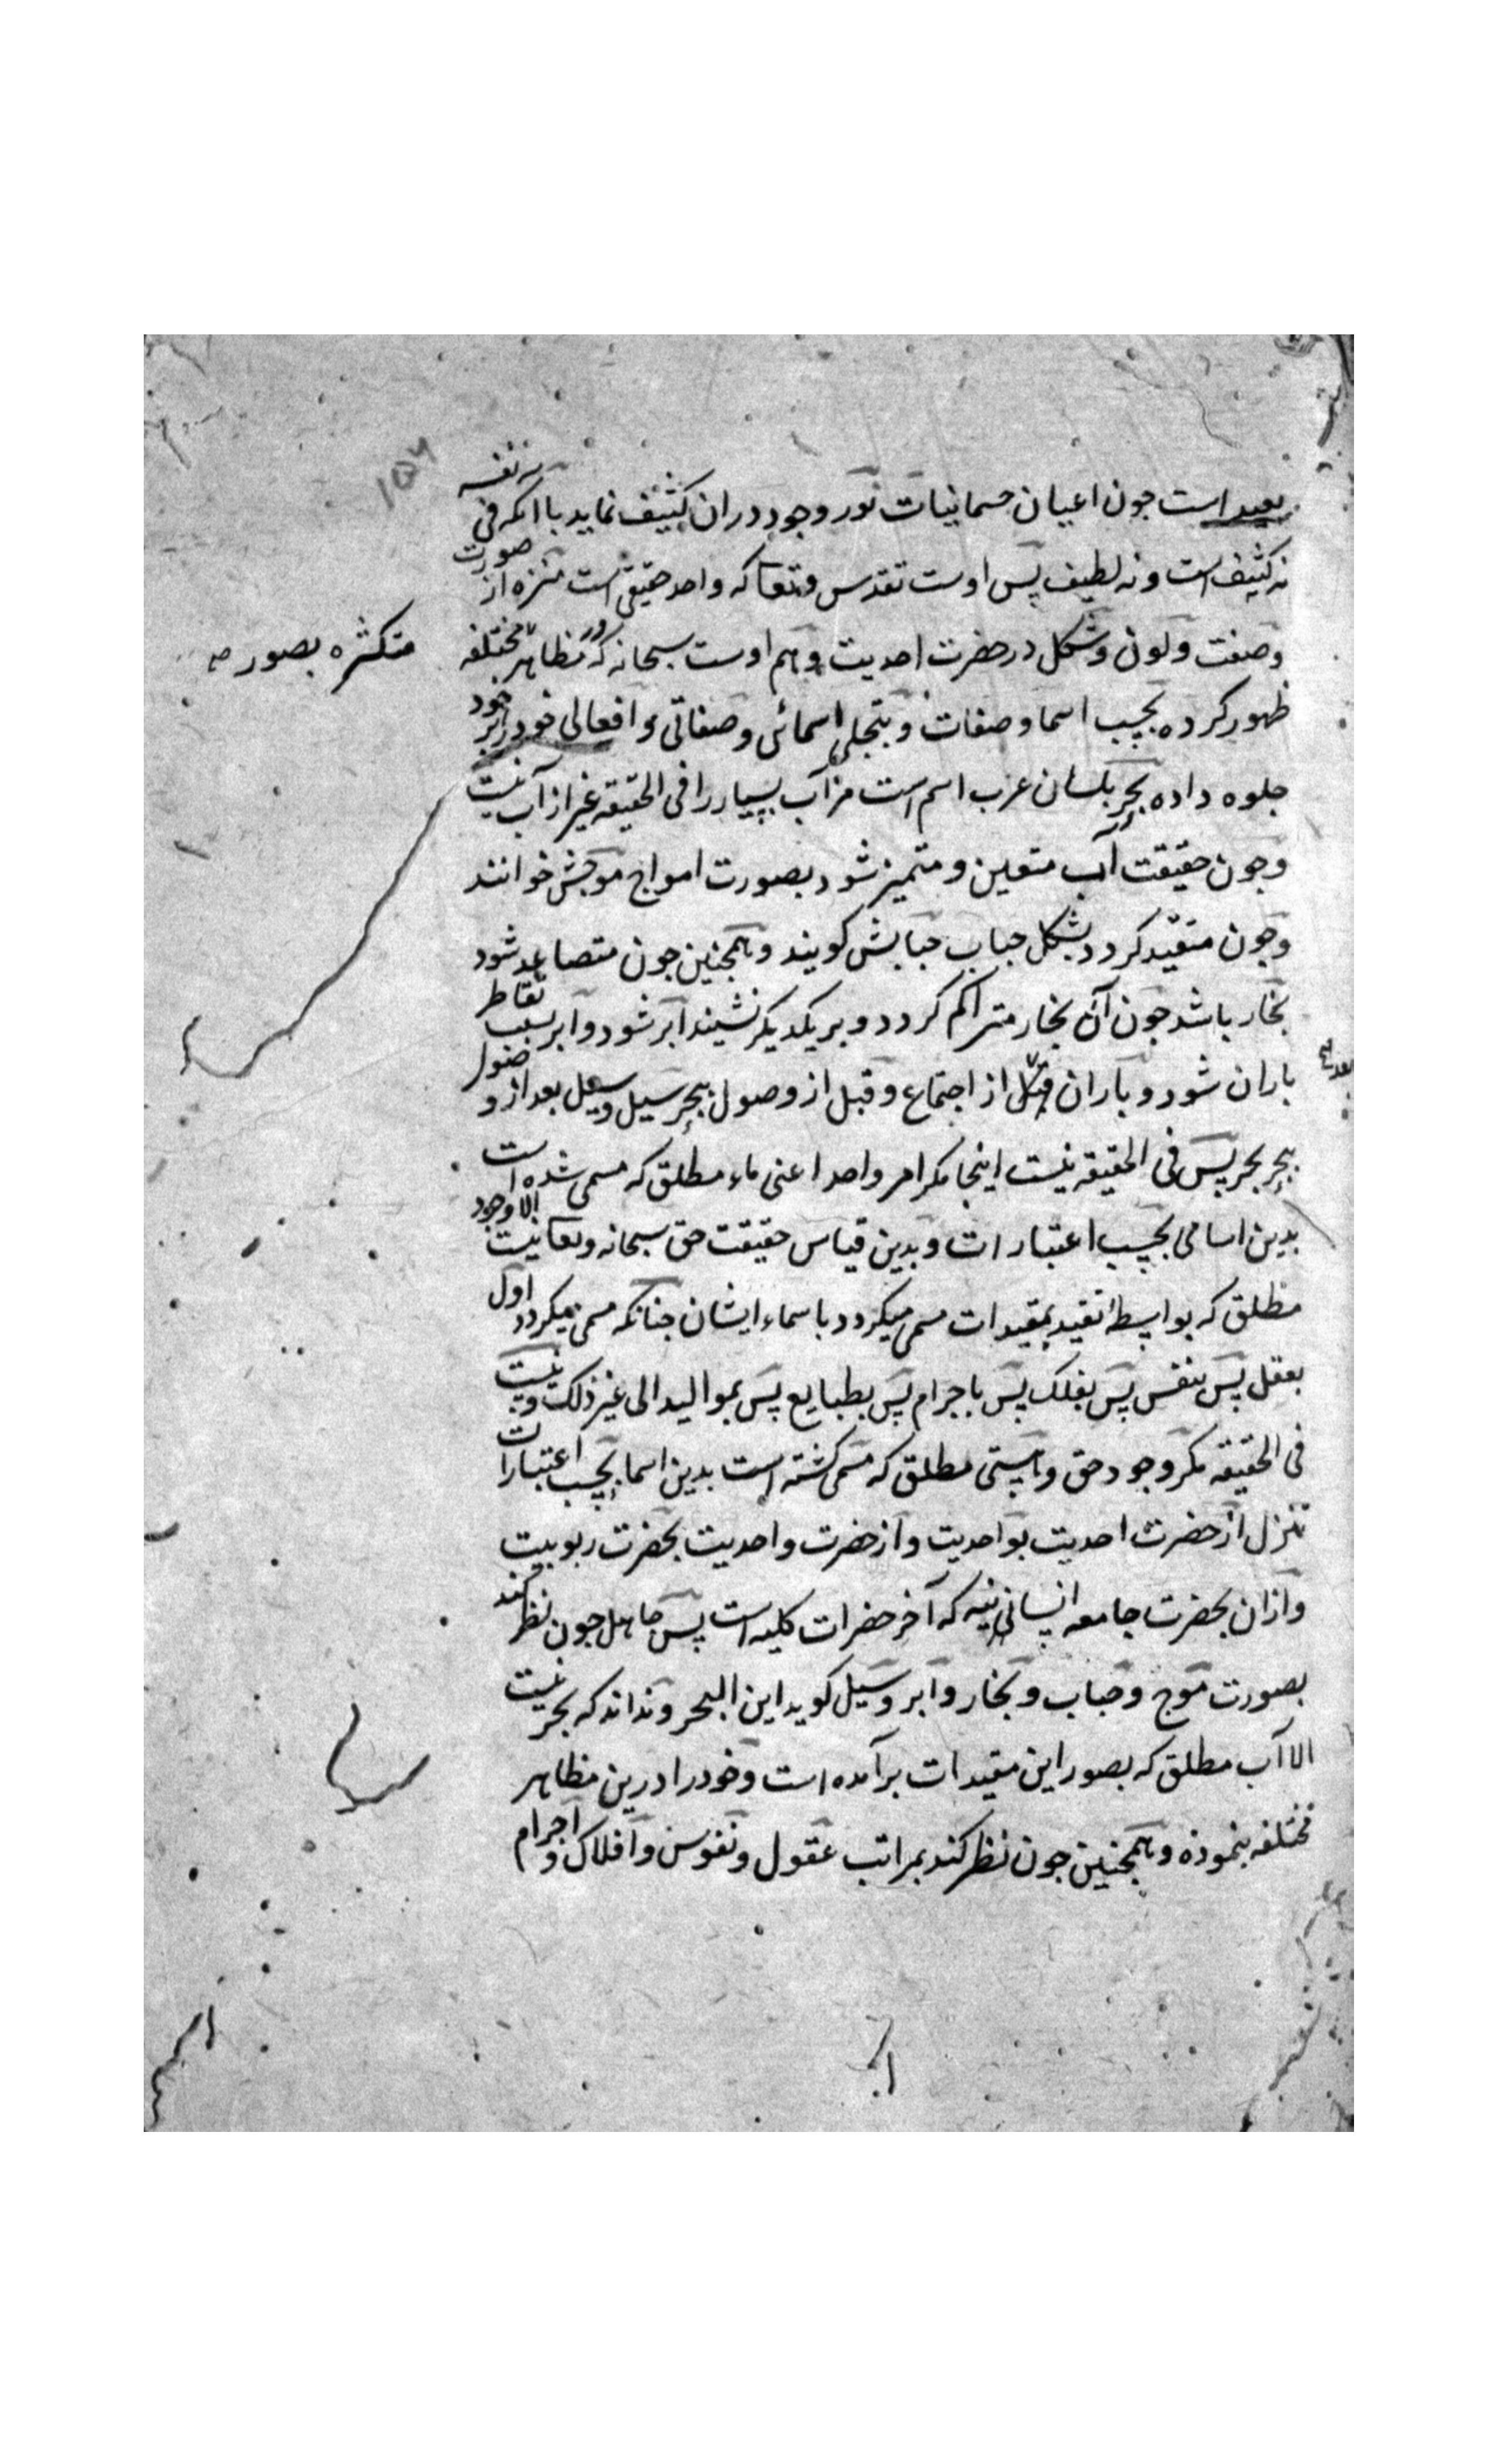 ۱۵۴
بعید است جون اعیان جسمانیات نور وجود دران کثیف نماید با آنکه فی نفسه
نه کثیف است و نه لطیف پس اوست تقدس و تعا که واحد حقیقی است منزه از صورت
وصفت ولون وشکل در حضرت احدیت وهم اوست سبحانه که در مظاهر مختلفه
متکثره بصور صح
ظهور کرده بحسب اسما وصفات و بتجلی اسمائی وصفاتی وافعالی خود را بر خود
جلوه داده بحر بلسان عرب اسم است مر آب بسیار را فی الحقیقه غیر از آب نیست
وجون حقیقت آب متعین ومتمیز شود بصورت امواج موجش خوانند
وجون متقید کردد بشکل حباب حبابش کویند وهمجنین جون متصاعد شود
بخار باشد جون آن بخار متراکم کردد وبر یکدیکر نشیند ابر شود وابر بسبب تقاطر
باران شود وباران از اجتماع وقبل از وصول ببحر سیل وسیل بعد از وصول
ببحر بحر پس فی الحقیقه نیست اینجا مکر امر واحد اعنی ماء مطلق که مسمی شده است
بدین اسامی بحسب اعتبارات وبدین قیاس حقیقت حق سبحانه وتعا نیست الا وجود
مطلق که بواسطه تقید بمقیدات مسمی میکردد باسماء ایشان جنانکه مسمی میکردد اول
بعقل پس بنفس پس بفلک پس باجرام پس بطبایع پس بموالید الی غیر ذلک ونیست
فی الحقیقه مکر وجود حق وهستی مطلق که مسمی کشته است بدین اسما بحسب اعتبارات
تنزل از حضرت احدیت بواحدیت واز حضرت واحدیت بحضرت ربوبیت
وازان بحضرت جامعه انسانیه که آخر حضرات کلیه است پس جاهل جون نظر کند
بصورت موج وحباب وبخار وابر وسیل کوید این البحر ونداند که بحر نیست
الا آب مطلق که بصور این مقیدات برآمده است وخود را درین مظاهر
مختلفه بنموده وهمجنین جون نظر کند بمراتب عقول ونفوس وافلاک واجرام